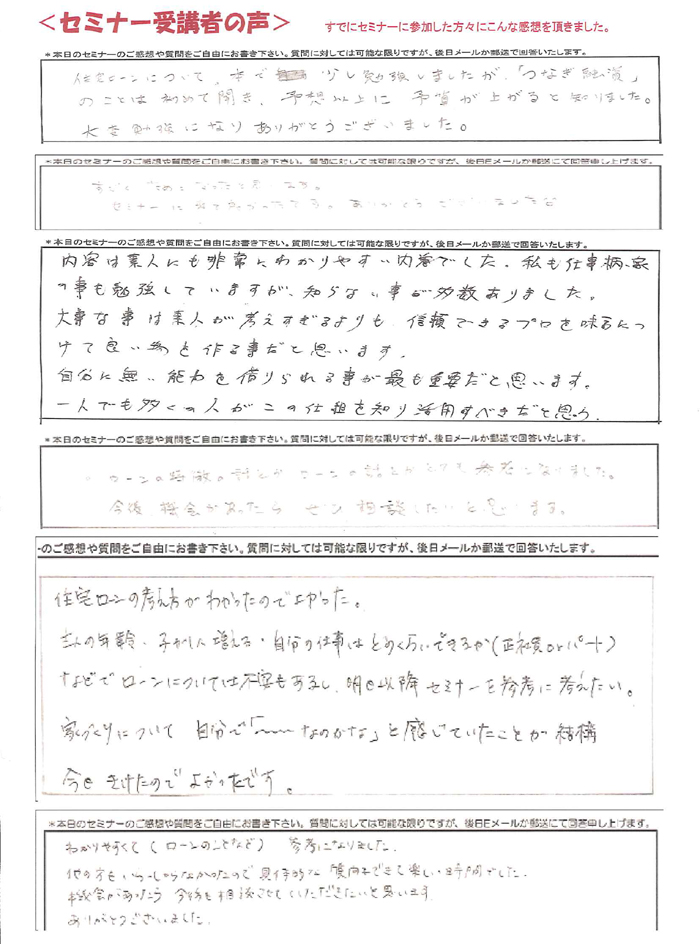 ＜セミナー受講者の声＞
すでにセミナーに参加した方々にこんな感想を頂きました。
＊本日のセミナーのご感想や質問をご自由にお書き下さい。質問に対しては可能な限りですが、後日メールか郵送で回答いたします。
住宅ローンについて、本で 少し勉強しましたが、「つなぎ融資」
のことは初めて聞き、予想以上に 予算が上がると知りました。
大変勉強になりありがとうございました。
＊本日のセミナーのご感想や質問をご自由にお書き下さい。質問に対しては可能な限りですが、後日Eメールか郵送にて回答申し上げます。
セミナーに ありがとうございました
＊本日のセミナーのご感想や質問をご自由にお書き下さい。質問に対しては可能な限りですが、後日メールか郵送で回答いたします。
内容は素人にも非常にわかりやすい内容でした。私も仕事柄、家
の事も勉強していますが、知らない事が多数ありました。
大事な事は素人が考えすぎるよりも、信頼できるプロを味方につ
けて良い物を作る事だと思います。
自分に無い能力を借りられる事が最も重要だと思います。
一人でも多くの人がこの仕組を知り活用すべきだと思う。
＊本日のセミナーのご感想や質問をご自由にお書き下さい。質問に対しては可能な限りですが、後日メールか郵送で回答いたします。
ローンの 話とか とても 参考になりました。
今後 機会があったら ぜひ 相談したいと思います。
のご感想や質問をご自由にお書き下さい。質問に対しては可能な限りですが、後日メールか郵送で回答いたします。
住宅ローンの考え方がわかったのでよかった。
主人の年齢・子が1人増える・自分の仕事はどのくらいできるか(正社員orパート)
などでローンについては不安もあるし、明日以降セミナーを参考に考えたい。
家づくりについて 自分で「〜〜なのかな」と感じていたことが結構
今日きけたのでよかったです。
＊本日のセミナーのご感想や質問をご自由にお書き下さい。質問に対しては可能な限りですが、後日Eメールか郵送にて回答申し上げます。
わかりやすくて(ローンのことなど) 参考になりました。
他の方もいらっしゃらなかったので具体的な質問もできて楽しい時間でした。
機会があったら 今後も相談させていただきたいと思います
ありがとうございました。